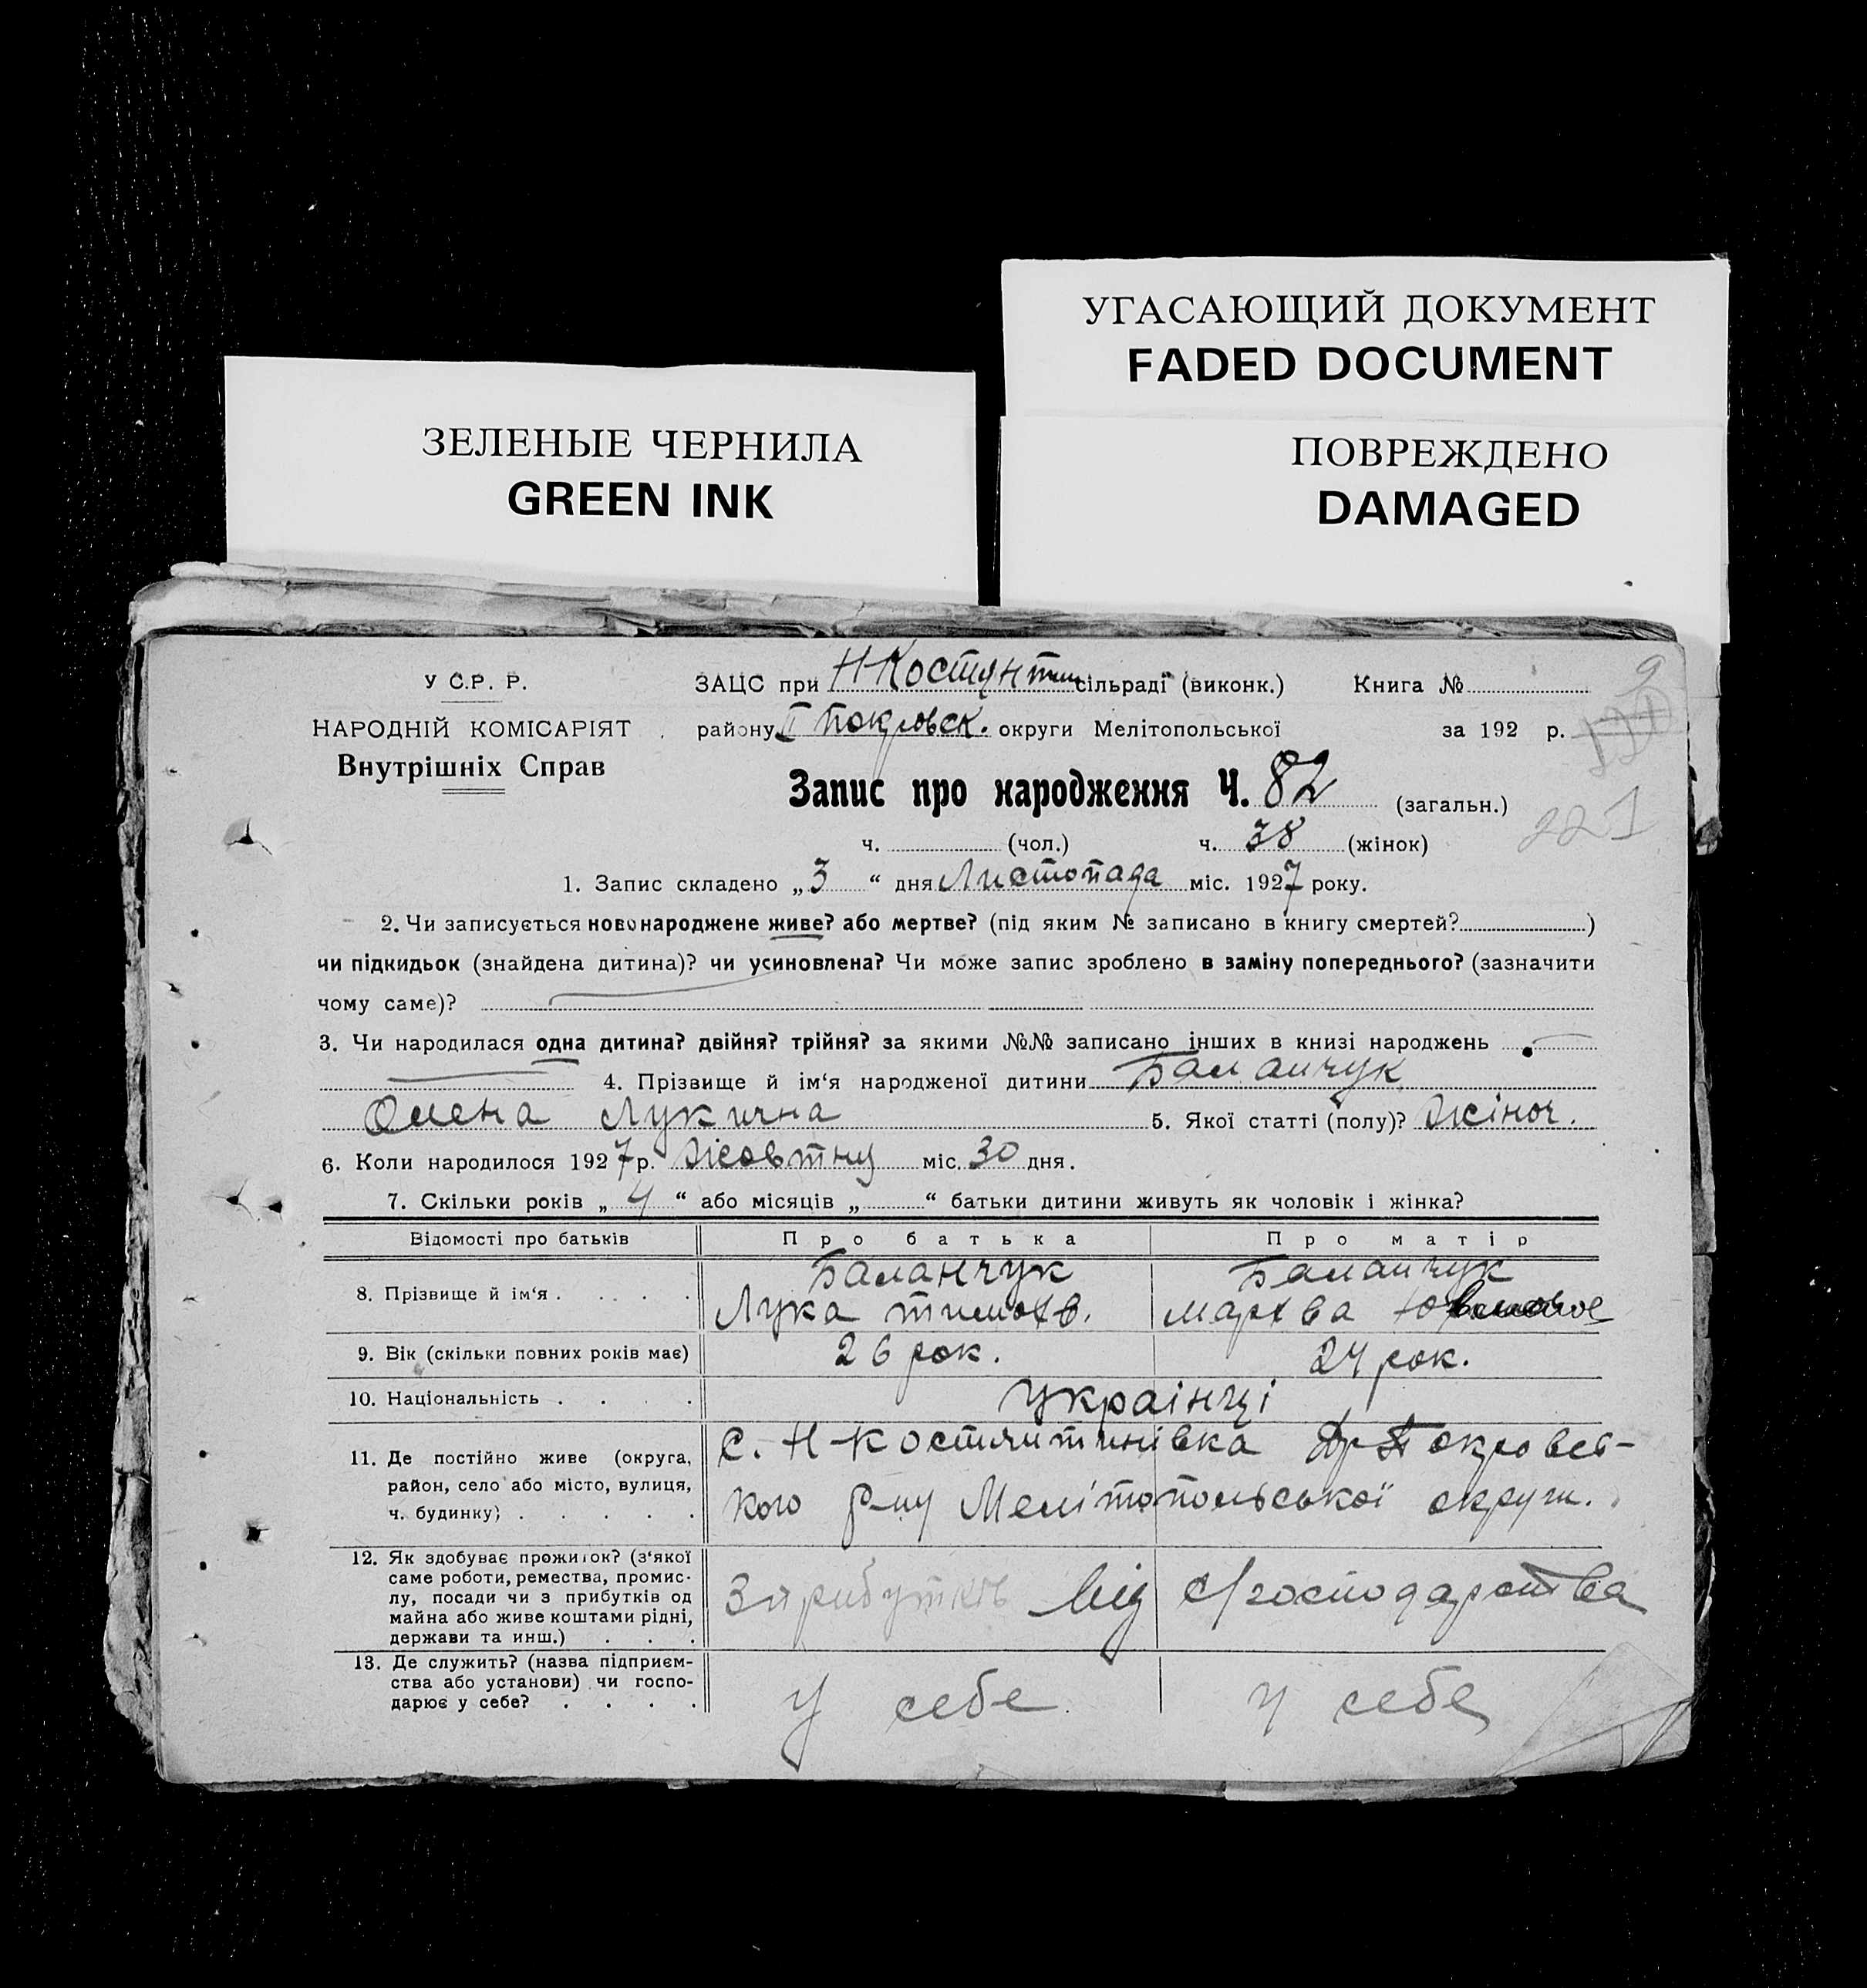 УГАСАЮЩИЙ ДОКУМЕНТ
FADED DOCUMENT
ПОВРЕЖДЕНО
DAMAGED
ЗЕЛЕНЫЕ ЧЕРНИЛА
GREEN INK
У С.Р. Р.
НАРОДНІЙ КОМІСАРІЯТ
Внутрішніх Справ
ЗАЦС при Н Костянтин сільраді (виконк.) Книга № 9
району Покровск. округи Мелітопольської за 192 р.
Запис про народження Ч. 82 (загальн.)
221
ч. (чол.) ч. 38 (жінок)
1. Запис складено „3“ дня Листопада міс. 1927 року.
2. Чи записується новонароджене живе? або мертве? (під яким № записано в книгу смертей? )
чи підкидьок (знайдена дитина)? чи усиновлена? Чи може запис зроблено в заміну попереднього? (зазначити
чому саме)?
3. Чи народилася одна дитина? двійня? трійня? за якими №№ записано інших в книзі народжень
4. Прізвище й ім‘я народженої дитини Баланчук
Олена Лукична 5. Якої статті (полу)? Жіноч.
6. Коли народилося 1927 р. Жовтня міс. 30 дня.
7. Скільки років „4“ або місяців „ “ батьки дитини живуть як чоловік і жінка?
Відомості про батьків Про батька Про матір
8. Прізвище й ім‘я . Баланчук Баланчук
Лука Тимохв. Мархва
9. Вік (скільки повних років має) 26 рок. 24 рок.
10. Національність . Українці
11. Де постійно живе (округа,
район, село або місто, вулиця,
ч. будинку)
с. Н-Костянтинівка Покровсь-
кого р-ну Мелітопольської округи.
12. Як здобуває прожиток? (з‘якої
саме роботи, ремества, промис-
лу, посади чи з прибутків од
майна або живе коштами рідні,
держави та инш.)
З прибутків від с/господарства
13. Де служить? (назва підприєм-
ства або установи) чи госпо-
дарює у себе?
у себе у себе